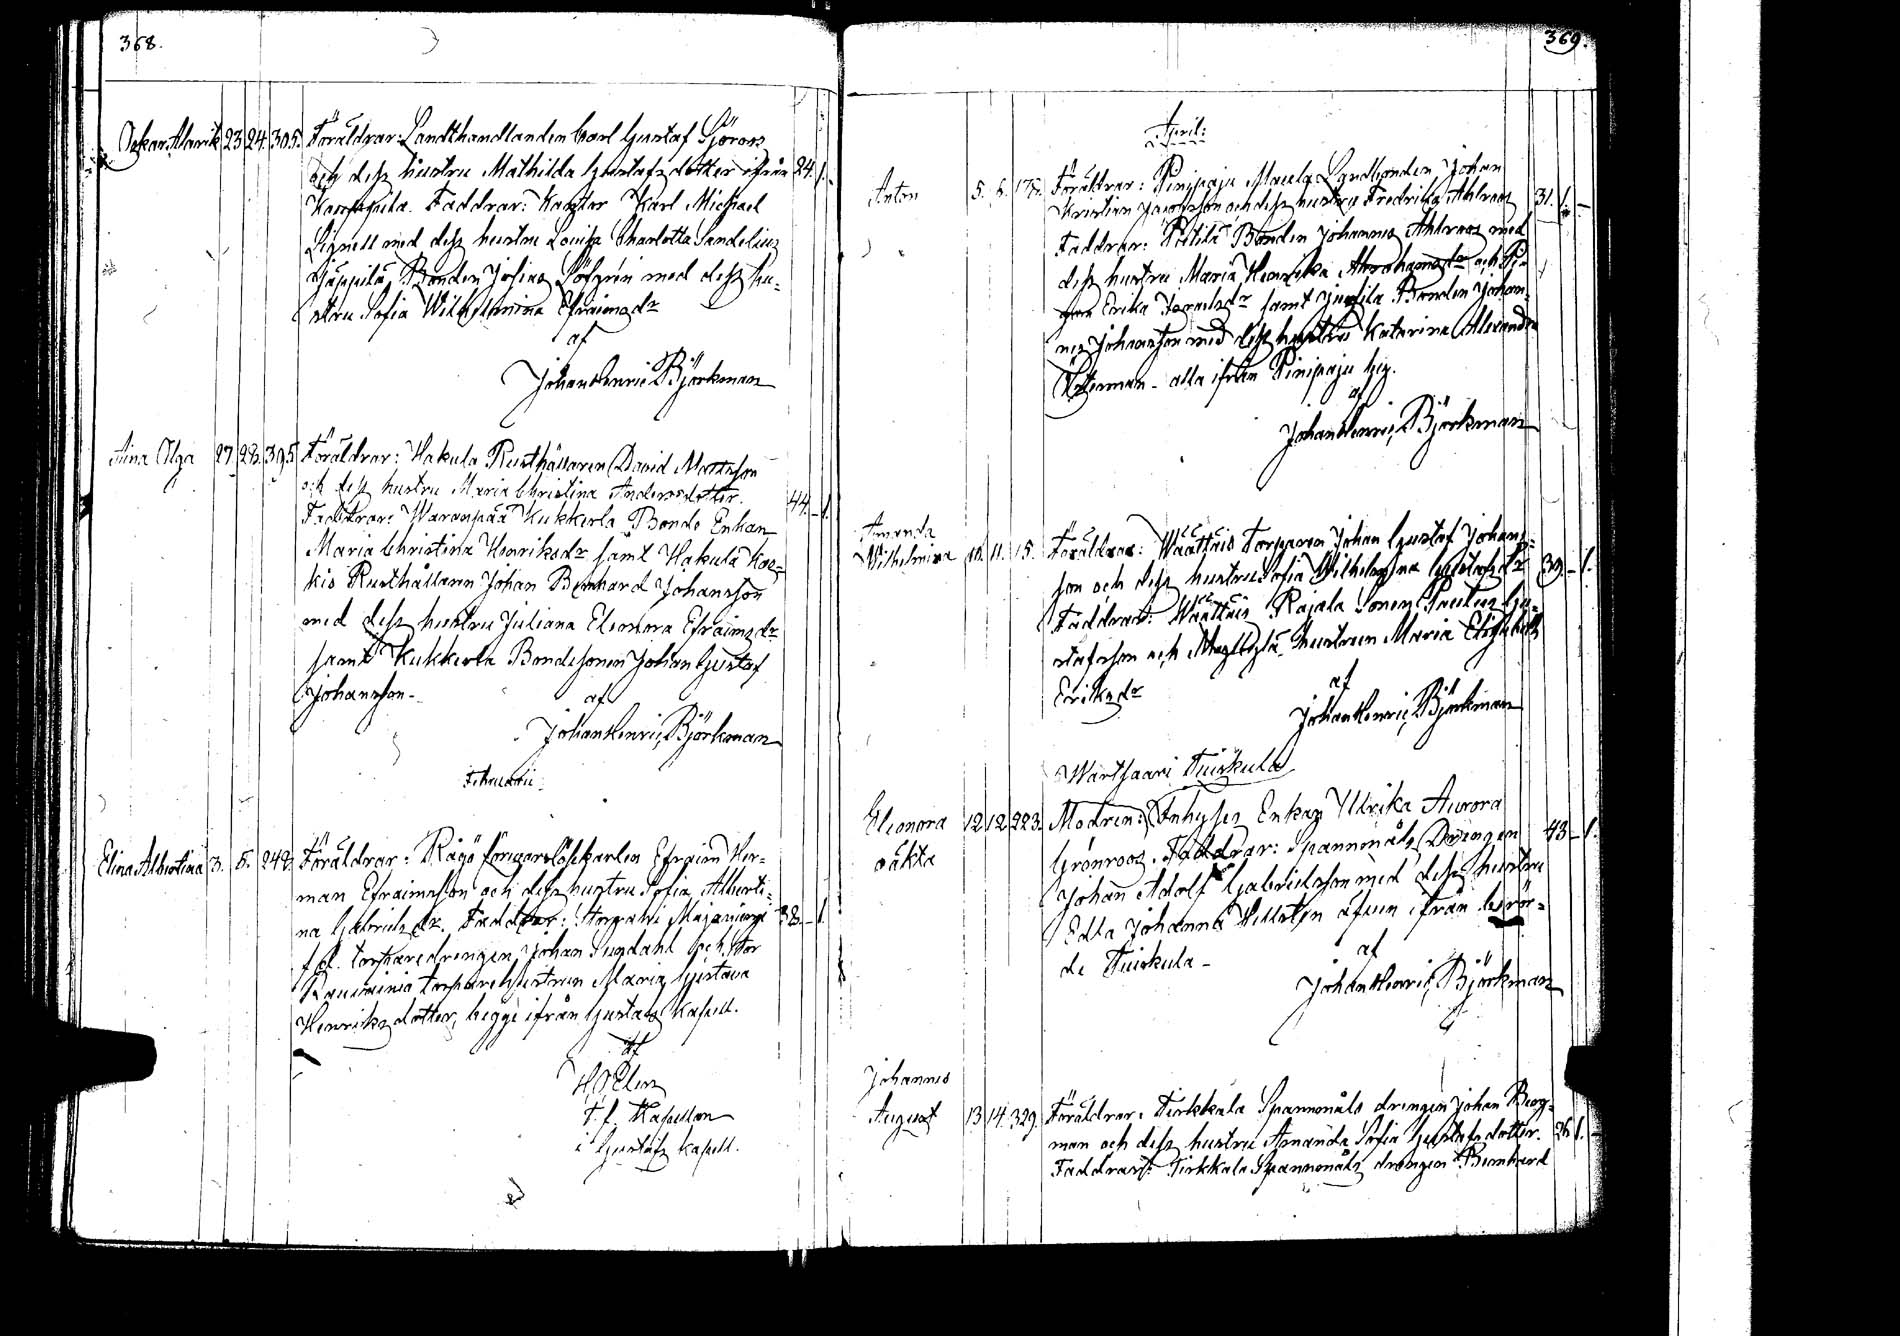 368.
Oskar Alarik 23 24. 305. Föräldrar: Landthandlanden Carl Gustaf Sjöroos
och dess hustru Mathilda Gustafsdotter ifrån 24. 1.
Faddrar: Kantor Karl Michael
Lignell med dess hustru Lovisa Charlotta Sandelius
Bonden Josias Löfgrén med dess hu-
stru Sofia Wilhelmina Efraimsdr
af
Johan Henric Björkman
Aina Olga 27. 28. 395 Föräldrar: Hakula Rusthållaren David Mattsson
och dess hustru Maria Christina Andersdotter. 44. – 1.
Faddrar: Waranpää Kukkerla Bonde Enkan
Maria Christina Henriksdr samt Hakula Kos-
kis Rusthållaren Johan Bernhard Johansson
med dess hustru Juliana Eleonora Efraimsdr
samt Kukkerla Bondesonen Johan Gustaf
Johansson –
af
Johan Henric Björkman
Februarii
Elina Albertina 3. 5. 248. Föräldrar: Rågö försvarslöskarlen Efraim Her-
man Efraimsson och dess hustru Sofia Alberti-
na Gabrielsdr. Faddrar: 38. – 1.
f.d. torparedrengen Johan Sundahl och Stor
torparehustrun Maria Gustava
Henriksdotter, begge ifrån Gustafs Kapell.
af
T.f. Kapellan
i Gustafs Kapell.
369.
April:
Anton 5. 6. 175. Föräldrar: Pinipaju Landbonden Johan
Kristian Jacobsson och dess hustru Fredrika Ahlroos 31. 1. –
Faddrar: Pottila Bonden Johannes Ahlroos med
dess hustru Maria Henrika Abrahamsdr och Pi-
gan Erika Israelsdr samt Bonden Johan-
nes Johansson med dess hustru Katarina Alexandra
Österman – alla ifrån Pinipaju by.
af
Johan Henric Björkman
Amanda
Wilhelmina 10. 11. 15. Föräldrar: Wäättäis Torparen Johan Gustaf Johans-
son och dess hustru Sofia Wilhelmina Gustafsdr 39. – 1.
Faddrar: Wäättäis Rajala Sonen Paulus Gu-
stafsson och hustrun Maria Elisabeth
Eriksdr
af
Johan Henric Björkman
Wartsaari Tuiskula
Eleonora 12 12 223. Modren: Inhyses Enkan Ulrika Aurora
oäkta Grönroos. Faddrar: Spannmåls Drengen 43 – 1.
Johan Adolf Gabrielsson med dess hustru
Edla Johanna Hellsten äfven ifrån berör-
de Tuiskula –
af
Johan Henric Björkman
Johannes
August 13 14. 329. Föräldrar: Tirkkala Spannmåls drengen Johan Berg-
man och dess hustru Amanda Sofia Gustafsdotter. 26 1. –
Faddrar: Tirkkala Spannmåls drengen Bernhard